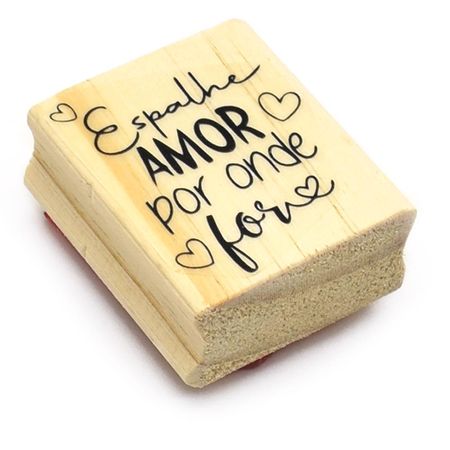 Espalhe
AMOR
por onde
for